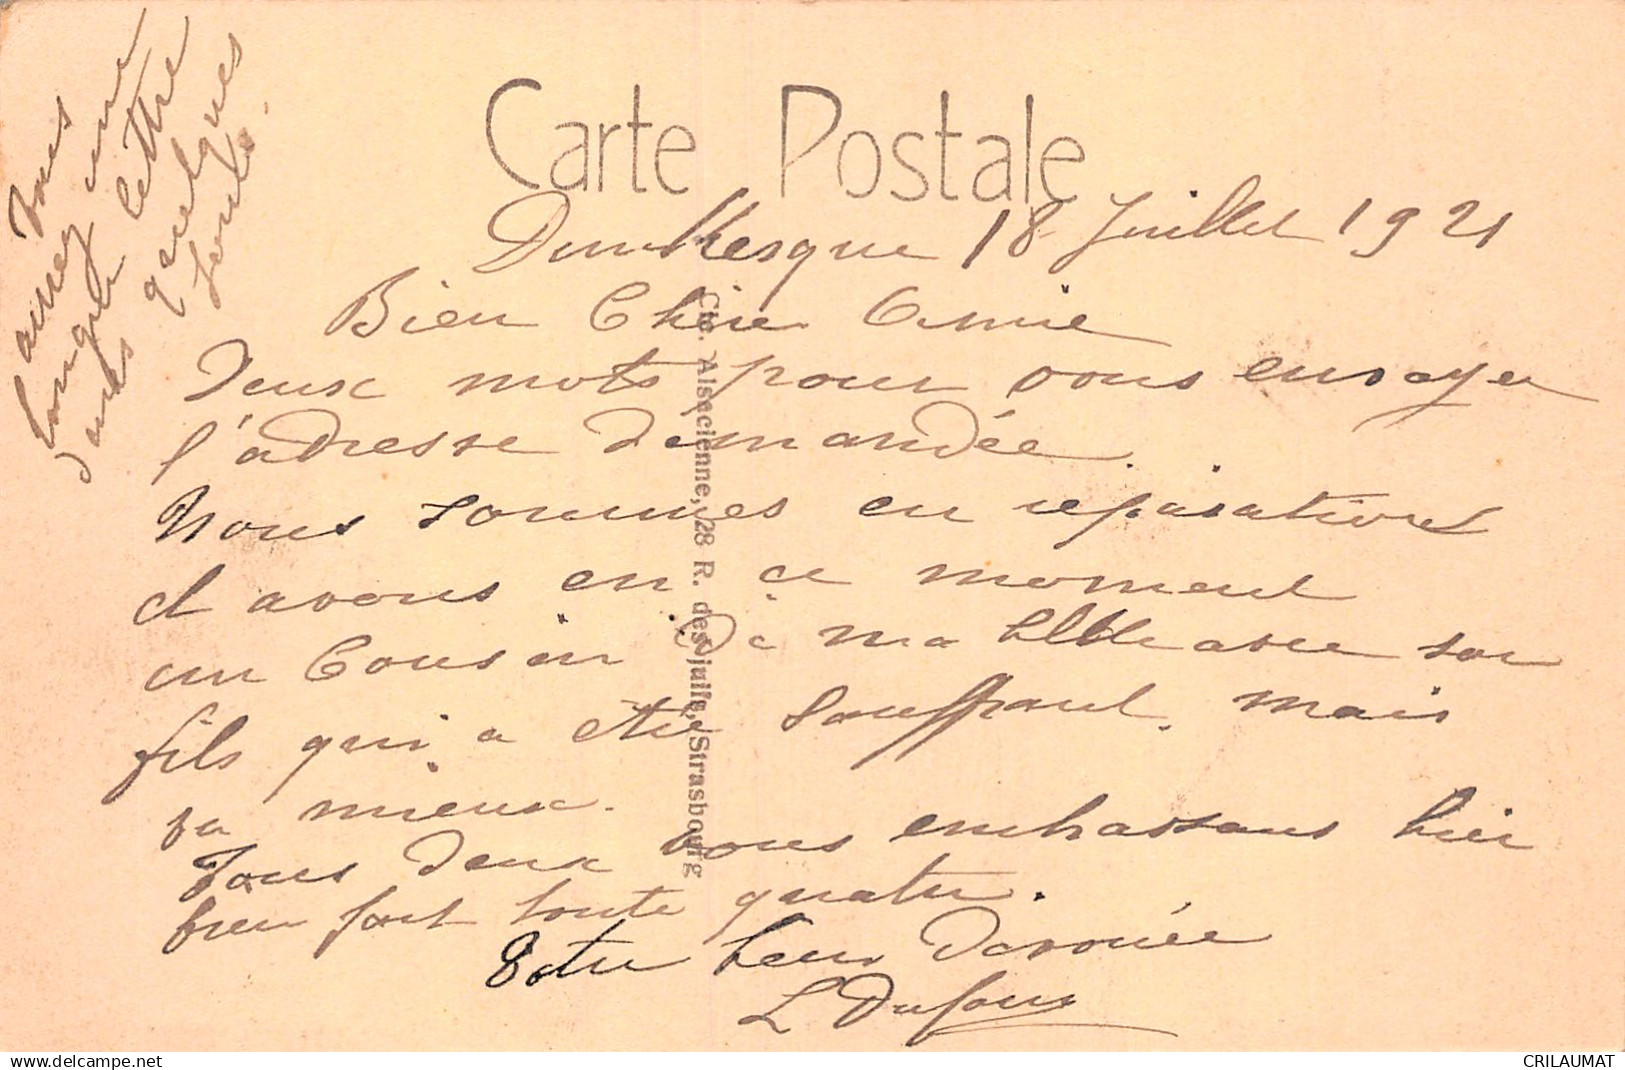 Vous
aurez une
longue lettre
dans quelques
jours.
Carte Postale
Dunkerque 18 Juillet 1921
Bien Chère Amie
Deux mots pour vous envoyer
l'adresse demandée.
Nous sommes en réparations
et avons en ce moment
un Cousin de ma avec son
fils qui a été souffrant, mais
va mieux.
Tous deux vous embrassons bien
bien fort toute quatre.
Votre bien dévouée
L Dufour
Cie. Alsacienne, 28 R. des juifs, Strasbourg
delcampe.net
CRILAUMAT